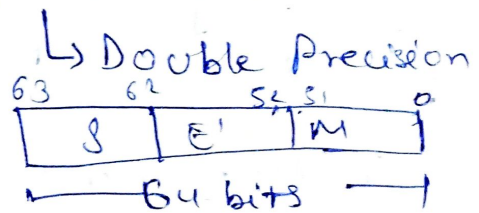 ↳ Double Precision
63 62 52 51 0
S E' M
64 bits